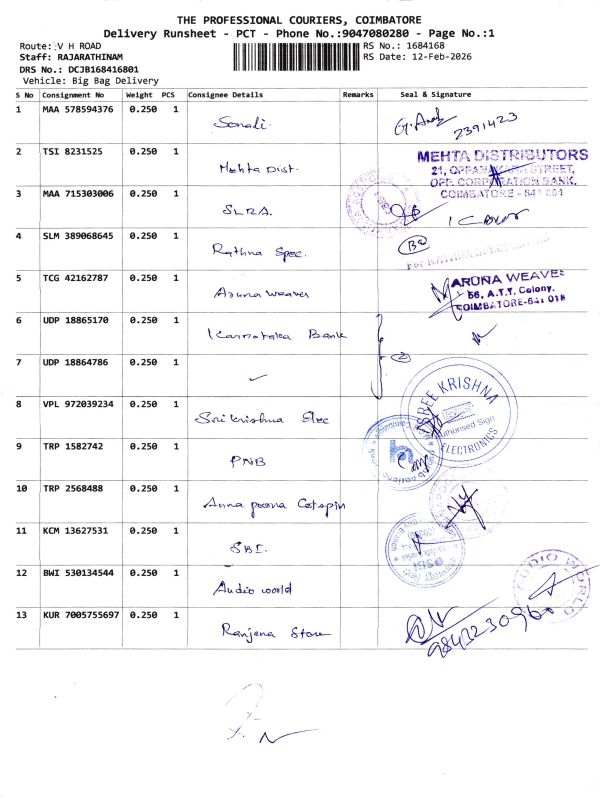 THE PROFESSIONAL COURIERS, COIMBATORE
Delivery Runsheet - PCT - Phone No.:9047080280 - Page No.:1
Route: V H ROAD RS No.: 1684168
Staff: RAJARATHINAM RS Date: 12-Feb-2026
DRS No.: DCJB168416801
Vehicle: Big Bag Delivery
S No Consignment No Weight PCS Consignee Details Remarks Seal & Signature
1 MAA 578594376 0.250 1 Sonali 2391423
2 TSI 8231525 0.250 1 Mehta Dist.
MEHTA DISTRIBUTORS
21, OPPANAKARA STREET,
OPP. CORPORATION BANK.
COIMBATORE - 641 001
3 MAA 715303006 0.250 1 SLRA.
4 SLM 389068645 0.250 1 Rathna Spec.
5 TCG 42162787 0.250 1 Aruna weaves
ARUNA WEAVES
56, A.T.T. Colony.
COIMBATORE-641 018
6 UDP 18865170 0.250 1 Karnataka Bank
7 UDP 18864786 0.250 1 ✓ 2
8 VPL 972039234 0.250 1 Sri Krishna Elec
SREE KRISHNA
Authorised Sign
ELECTRONICS
9 TRP 1582742 0.250 1 PNB
10 TRP 2568488 0.250 1 Anna poorna
11 KCM 13627531 0.250 1 SBI.
SBI
12 BWI 530134544 0.250 1 Audio world
AUDIO WORLD
13 KUR 7005755697 0.250 1 Ranjena Store